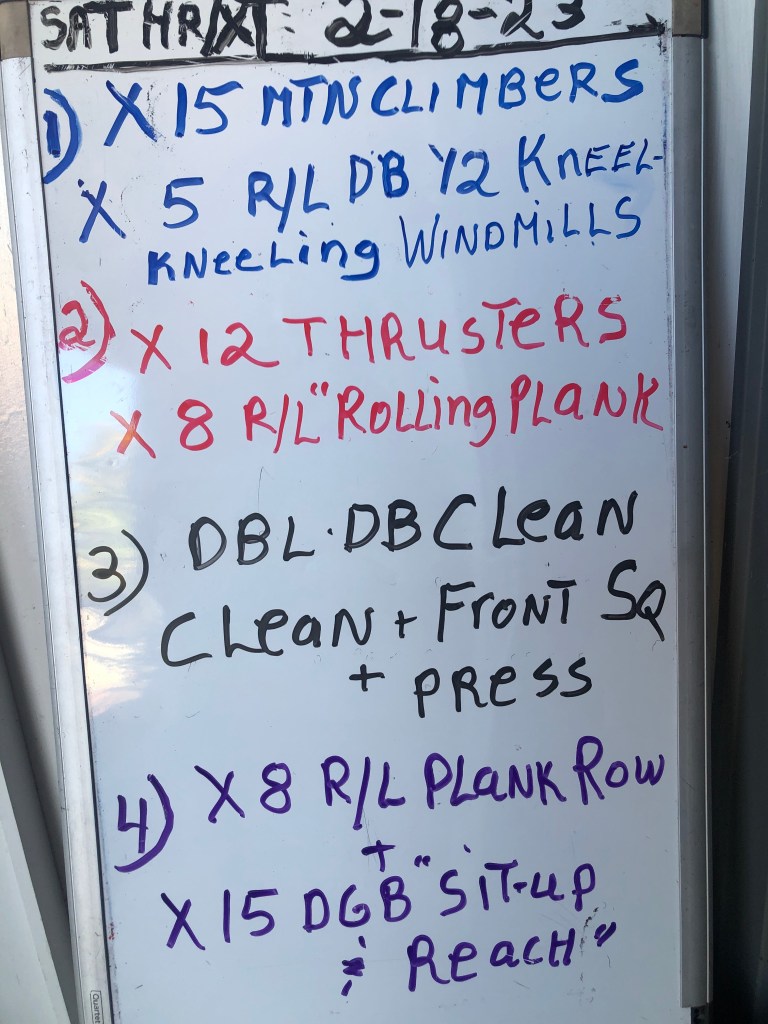 SAT HR/XT: 2-18-23
1) X 15 MTN CLIMBERS
X 5 R/L DB 1/2 KNEEL-
KNEELING WINDMILLS
2) X 12 THRUSTERS
X 8 R/L "ROLLING PLANK
3) DBL. DB CLEAN
CLEAN + FRONT SQ
+ PRESS
4) X 8 R/L PLANK ROW
+
X 15 DGB "SIT-UP
& REACH"
Quartet